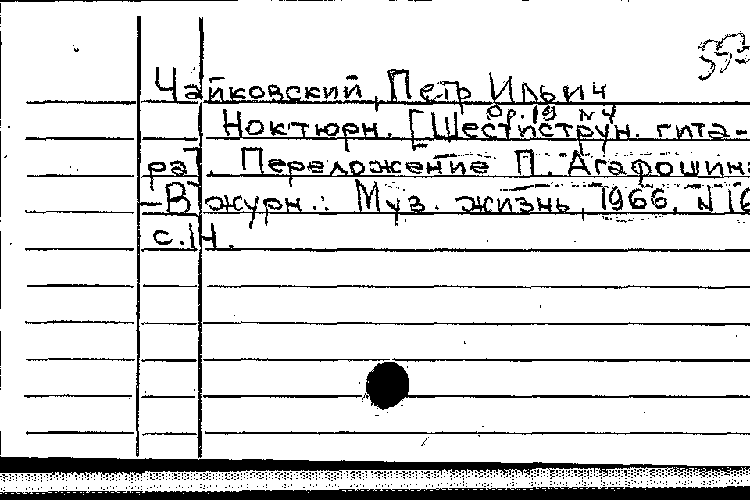 Чайковский, Петр Ильич
Op. 19 N 4
Ноктюрн. [Шестиструн. гита-
ра]. Переложение П. Агафошина
-В журн.: Муз. жизнь, 1966, N 16
с. 14.